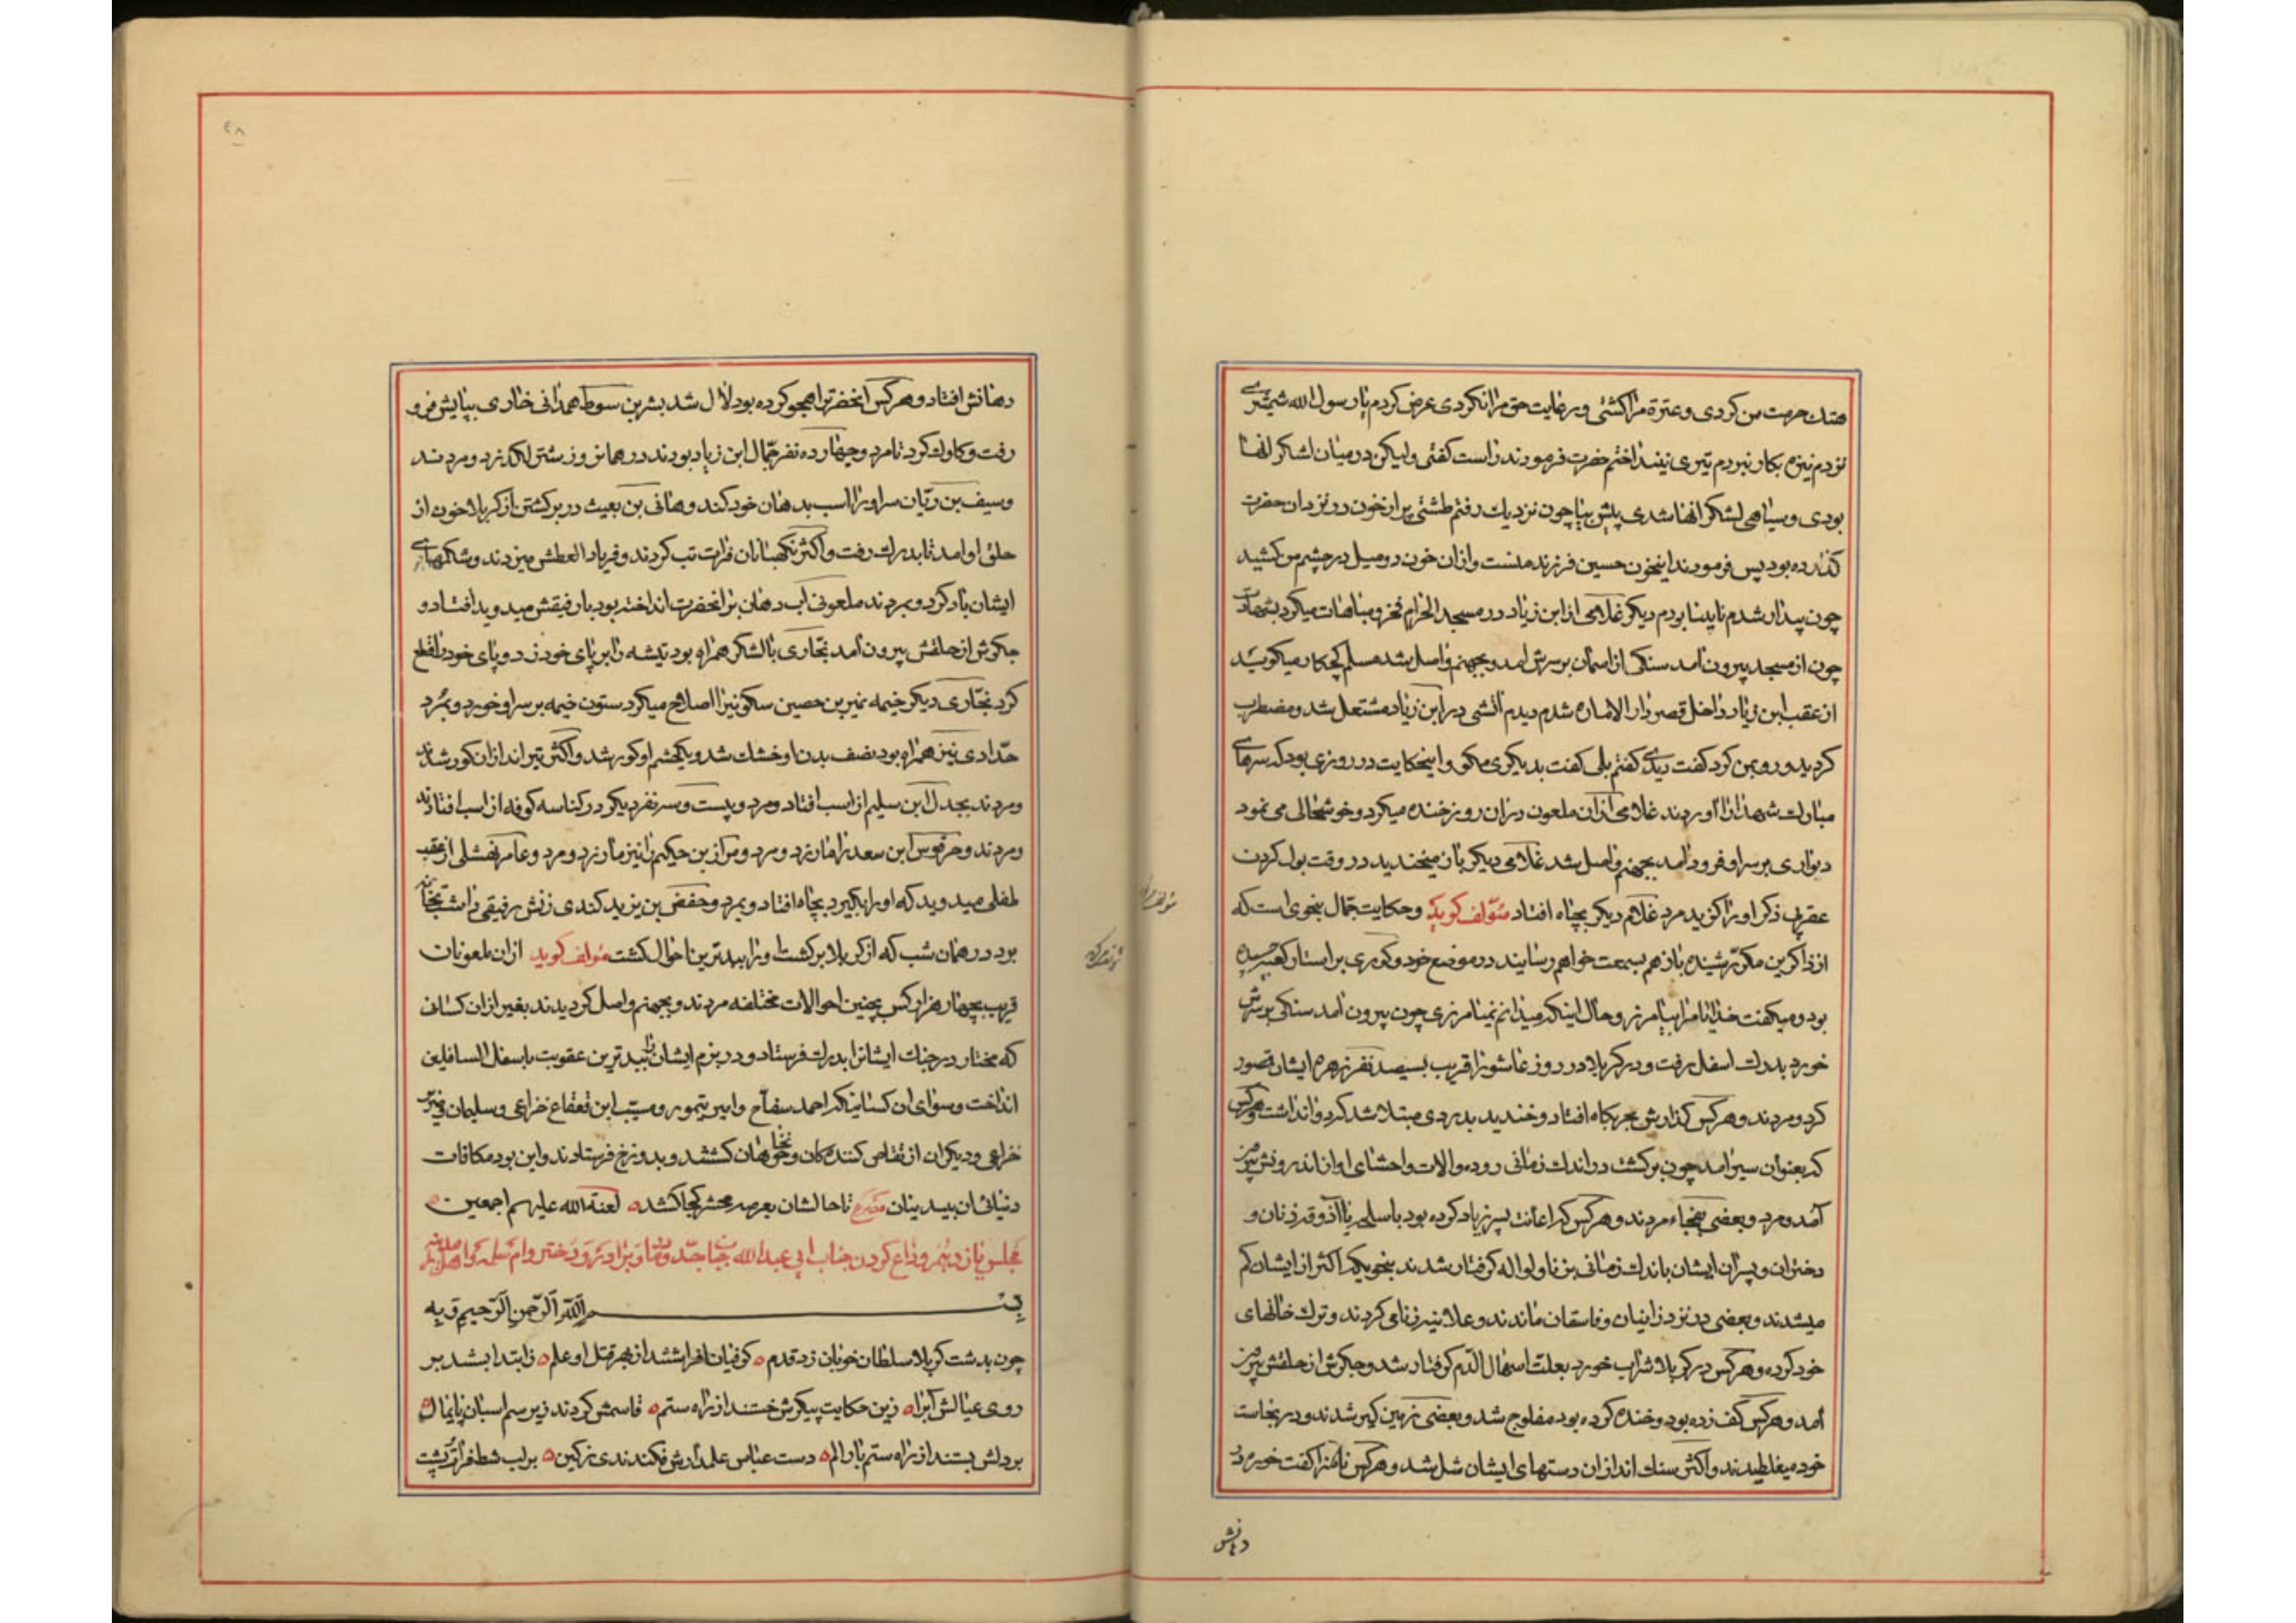 هتك حرمت من كردی و عترة مرا كشتی و رعایت حق مرا نكردی عرض كردم یا رسول الله شمشیری
نزدم نیزه بكار نبردم تیری نینداختم حضرت فرمودند راست كفتی ولیكن در میان لشكر انها
بودی و سیاهی لشكر انها شدی پیش بیا چون نزدیك رفتم طشتی پر از خون در نزد ان حضرت
كذارده بود پس فرمودند اینخون حسین فرزند منست و ازان خون دو میل در چشم من كشید
چون بیدار شدم نابینا بودم دیكر غلامی از ابن زیاد در مسجد الحرام فخر و مباهات میكرد
چون از مسجد بیرون آمد سنكی از اسمان بر سرش امد و بجهنم واصل شد مسلم كچكار میكوید
از عقب ابن زیاد داخل قصر دار الاماره شدم دیدم آتشی در ابن زیاد مشتعل شد و مضطرب
كردید و رو بمن كرد كفت دیدی كفتم بلی كفت بدیكری مكو و اینحكایت در روزی بود كه سرهای
مبارك شهدا را اوردند غلامی ازان ملعون دران روز خنده میكرد و خوشحالی می نمود
دیواری بر سر او فرود آمد بجهنم واصل شد غلامی دیكر بان میخندید در وقت بول كردن
عقربی ذكر او را كزید مرد غلام دیكر بچاه افتاد مؤلف كوید و حكایت جمال بنحوی است كه
از ذاكرین مكرر شنیده باز هم بسمعت خواهم رسانید در موضع خود و كوری بر استار كعبه چسبیده
بود و میكفت خدایا مرا بیامرز و حال اینكه میدانم نمیامرزی چون بیرون آمد سنكی بر سرش
خورد بدرك اسفل رفت و در كربلا در روز عاشورا قریب بسیصد نفر زهره ایشان قصور
كرد و مردند و هر كس كذارش بحربكاه افتاد و خندید بدردی مبتلا شد كه دوا نداشت و هر كس
كه بعنوان سیر امد چون بركشت در اندك زمانی روده و الات و احشای او از اندرونش بیرون
آمد و مرد و بعضی بفجاء مردند و هر كس كه اعانت پسر زیاد كرده بود با سلحه یا آذوقه زنان و
دختران و پسران ایشان باندك زمانی بزنا و لواله كرفتار شدند بنحویكه اكثر از ایشان كم
میشدند و بعضی در نزد زانیان و فاسقان ماندند و علانیه زنا می كردند و ترك خانهای
خود كرده و هر كس در كربلا شراب خورد بعلت اسهال الدم كرفتار شد و جكرش از حلقش بیرون
آمد و هر كس كف زده بود و خنده كرده بود مفلوج شد و بعضی زمین كیر شدند و در نجاست
خود میغلطیدند و اكثر سنك اندازان دستهای ایشان شل شد و هر كس ناسزا كفت خوره در
دهانش
دهانش افتاد و هر كس انحضرترا هجو كرده بود لال شد بشر بن سوط همدانی خاری بپایش فرو
رفت و كاوك كرد تا مرد و چهارده نفر جمال ابن زیاد بودند در همانروز شتر لكد زد و مردند
و سیف بن ریان سر او را اسب بدهان خود كند و هانی بن بعیث در بركشتن از كربلا خون از
حلق او امد تا بدرك رفت و اكثر نكهبانان فرات تب كردند و فریاد العطش میزدند و شكمهای
ایشان باد كرد و مردند ملعونی آب دهان بر انحضرت انداخته بود با رفیقش میدوید افتاد و
جكرش از حلقش بیرون آمد نجاری با لشكر همراه بود تیشه را بر پای خود زد و پای خود را قطع
كرد نجاری دیكر خیمه نمیر بن حصین سكونیرا اصلاح میكرد ستون خیمه بر سر او خورد و بمرد
حدادی نیز همراه بود نصف بدن او خشك شد و یكچشم او كور شد و اكثر تیر اندازان كور شدند
و مردند بجدل ابن سلیم از اسب افتاد و مرد و بیست و سه نفر دیكر در كناسه كوفه از اسب افتادند
و مردند و حرقوس ابن سعد را مار زد و مرد و مركز بن حكیم را نیز مار زد و مرد و عامر نهشلی از عقب
طفلی میدوید كه او را بكیرد بچاه افتاد و بمرد و حفص بن یزید كندی زنش رفیقی داشت بخانه
برد در همان شب كه از كربلا بركشت او را ببدترین احوال كشت مؤلف كوید ازان ملعونان
قریب بچهار هزار كس بچنین احوالات مختلفه مردند و بجهنم واصل كردیدند بغیر ازان كسان
كه مختار در جنك ایشانرا بدرك فرستاد و در بزم ایشان را ببدترین عقوبت باسفل السافلین
انداخت و سوای ان كسانیكه احمد سفاح و امیر تیمور و مسیب ابن قعقاع خزاعی و سلیمان بن صرد
خزاعی و دیكران از تقاص كنندكان و خونخواهان كشتند و بدوزخ فرستادند و این بود مكافات
دنیائی ان بیدینان مصرع تا حالشان بعرصه محشر كجا كشد لعنة الله علیهم اجمعین
مجلس یازدهم وداع كردن جناب ابی عبدالله با جد و مادر و برادر و دختر و ام سلمه و اهل مدینه
بسم الله الرحمن الرحیم و به
چون بدشت كربلا سلطان خوبان زد قدم كوفیان افراشتند از بهر قتل او علم ز ابتدا بستند بر
روی عیالش آبرا زین حكایت پیكرش خستند از راه ستم قاسمش كردند زیر سم اسبان پایمال
بر دلش بستند از راه ستم بار الم دست عباس علمدارش فكندندی ز كین بر لب شط فرات